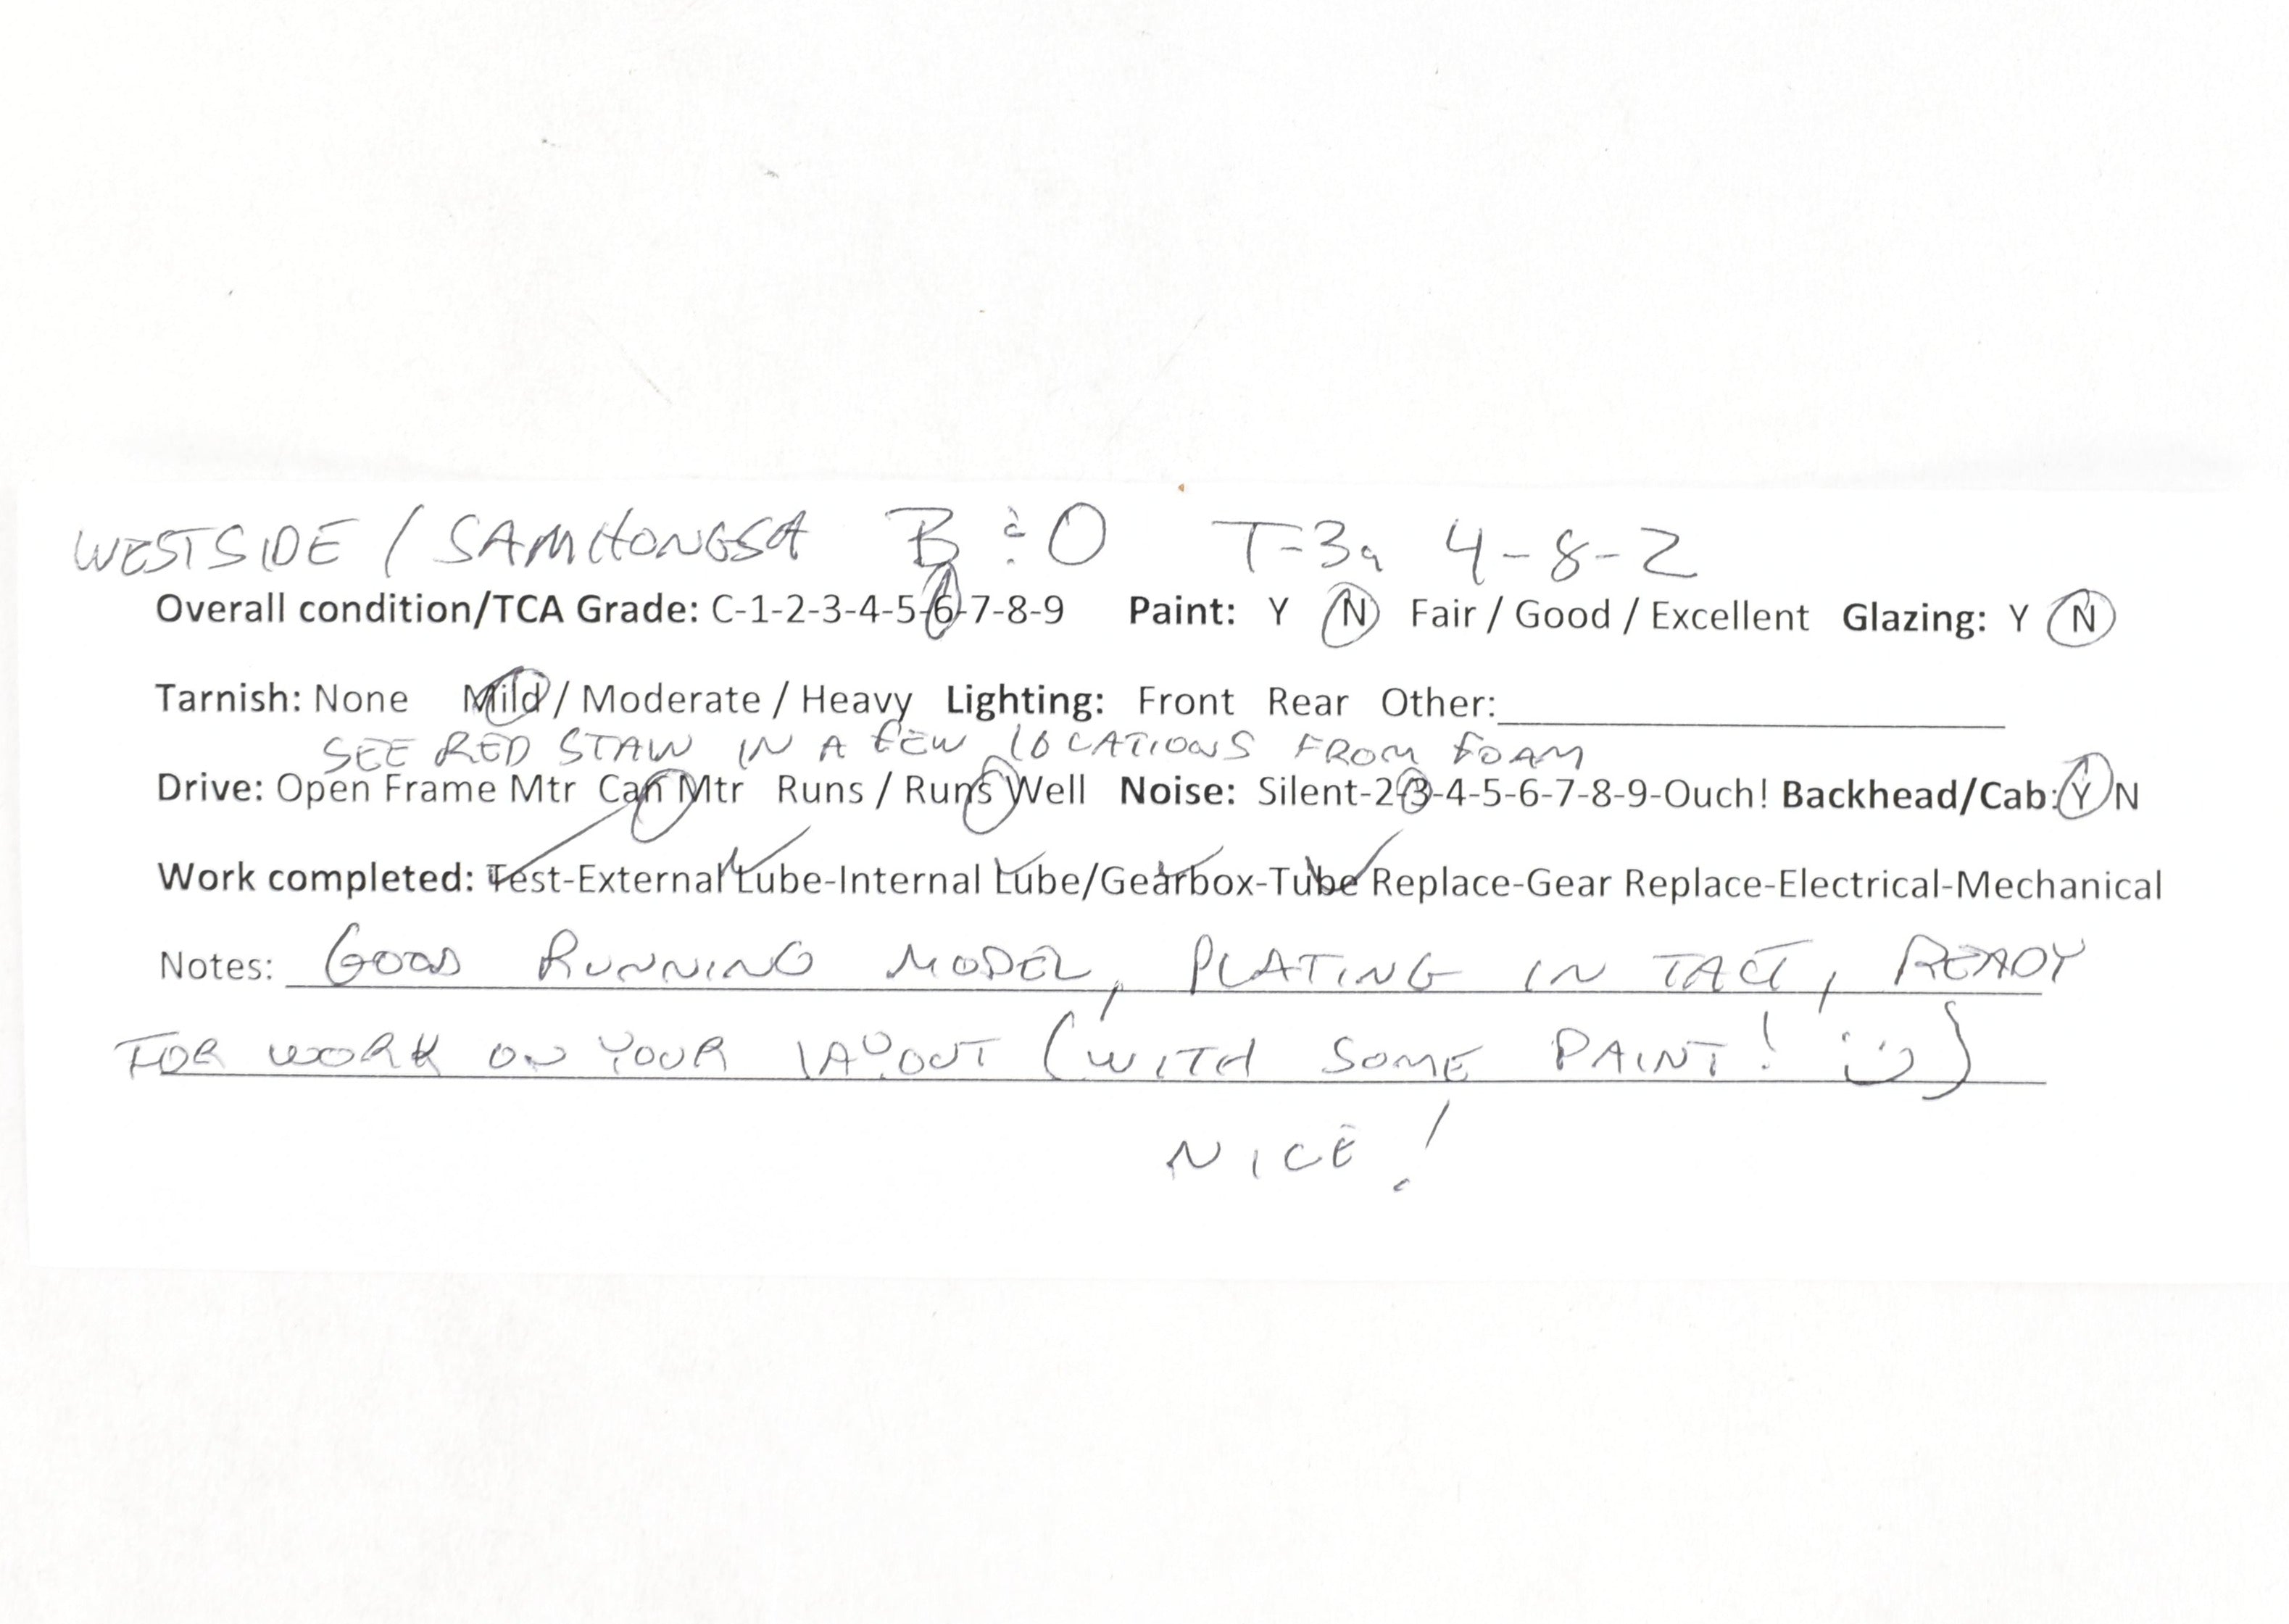 WESTSIDE / SAMHONGSA B & O T-3a 4-8-2
Overall condition/TCA Grade: C-1-2-3-4-5-6-7-8-9 Paint: Y N Fair / Good / Excellent Glazing: Y N
Tarnish: None Mild / Moderate / Heavy Lighting: Front Rear Other:
SEE RED STAIN IN A FEW LOCATIONS FROM FOAM
Drive: Open Frame Mtr Can Mtr Runs / Runs Well Noise: Silent-2-3-4-5-6-7-8-9-Ouch! Backhead/Cab: Y N
Work completed: Test-External Lube-Internal Lube/Gearbox-Tube Replace-Gear Replace-Electrical-Mechanical
Notes: GOOD RUNNING MODEL, PLATING IN TACT, READY
FOR WORK ON YOUR LAYOUT (WITH SOME PAINT! :))
NICE!